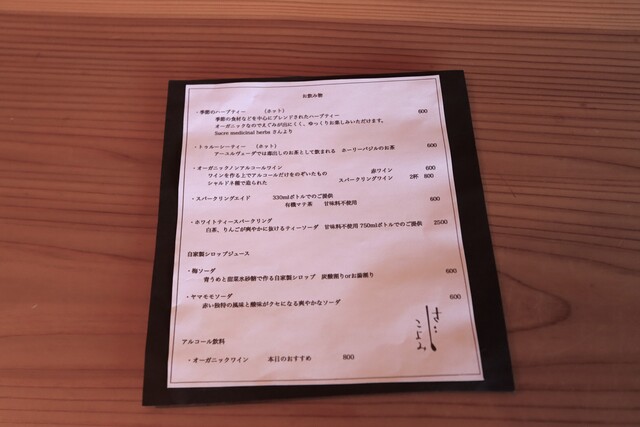 お飲み物
・季節のハーブティー （ホット） 600
季節の食材などを中心にブレンドされたハーブティー
オーガニックなのでえぐみが出にくく、ゆっくりお楽しみいただけます。
Sucre medicinal herbs さんより
・トゥルーシーティー （ホット） 600
アーユルヴェーダでは毒出しのお茶として飲まれる ホーリーバジルのお茶
・オーガニックノンアルコールワイン 600
ワインを作る上でアルコールだけをのぞいたもの 赤ワイン
シャルドネ種で造られた スパークリングワイン 2杯 800
・スパークリングエイド 330mlボトルでのご提供
有機マテ茶 甘味料不使用 600
・ホワイトティースパークリング
白茶、りんごが爽やかに抜けるティーソーダ 甘味料不使用 750mlボトルでのご提供 2500
自家製シロップジュース
・梅ソーダ 600
青うめと甜菜氷砂糖で作る自家製シロップ 炭酸割りorお湯割り
・ヤマモモソーダ 600
赤い独特の風味と酸味がクセになる爽やかなソーダ
アルコール飲料
・オーガニックワイン 本日のおすすめ 800